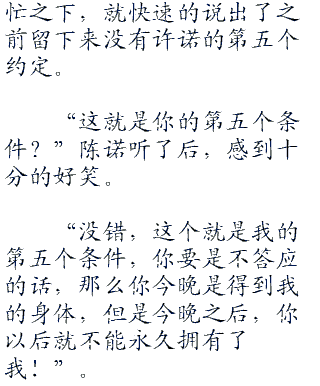 忙之下，就快速的说出了之
前留下来没有许诺的第五个
约定。
“这就是你的第五个条
件？”陈诺听了后，感到十
分的好笑。
“没错，这个就是我的
第五个条件，你要是不答应
的话，那么你今晚是得到我
的身体，但是今晚之后，你
以后就不能永久拥有了
我！”。